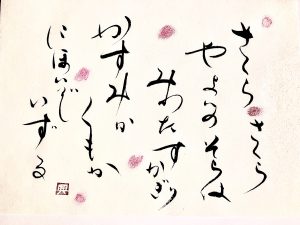 さくら さくら
やよひのそらは
みわたすかぎり
かすみか
くもか
にほひぞ
いずる